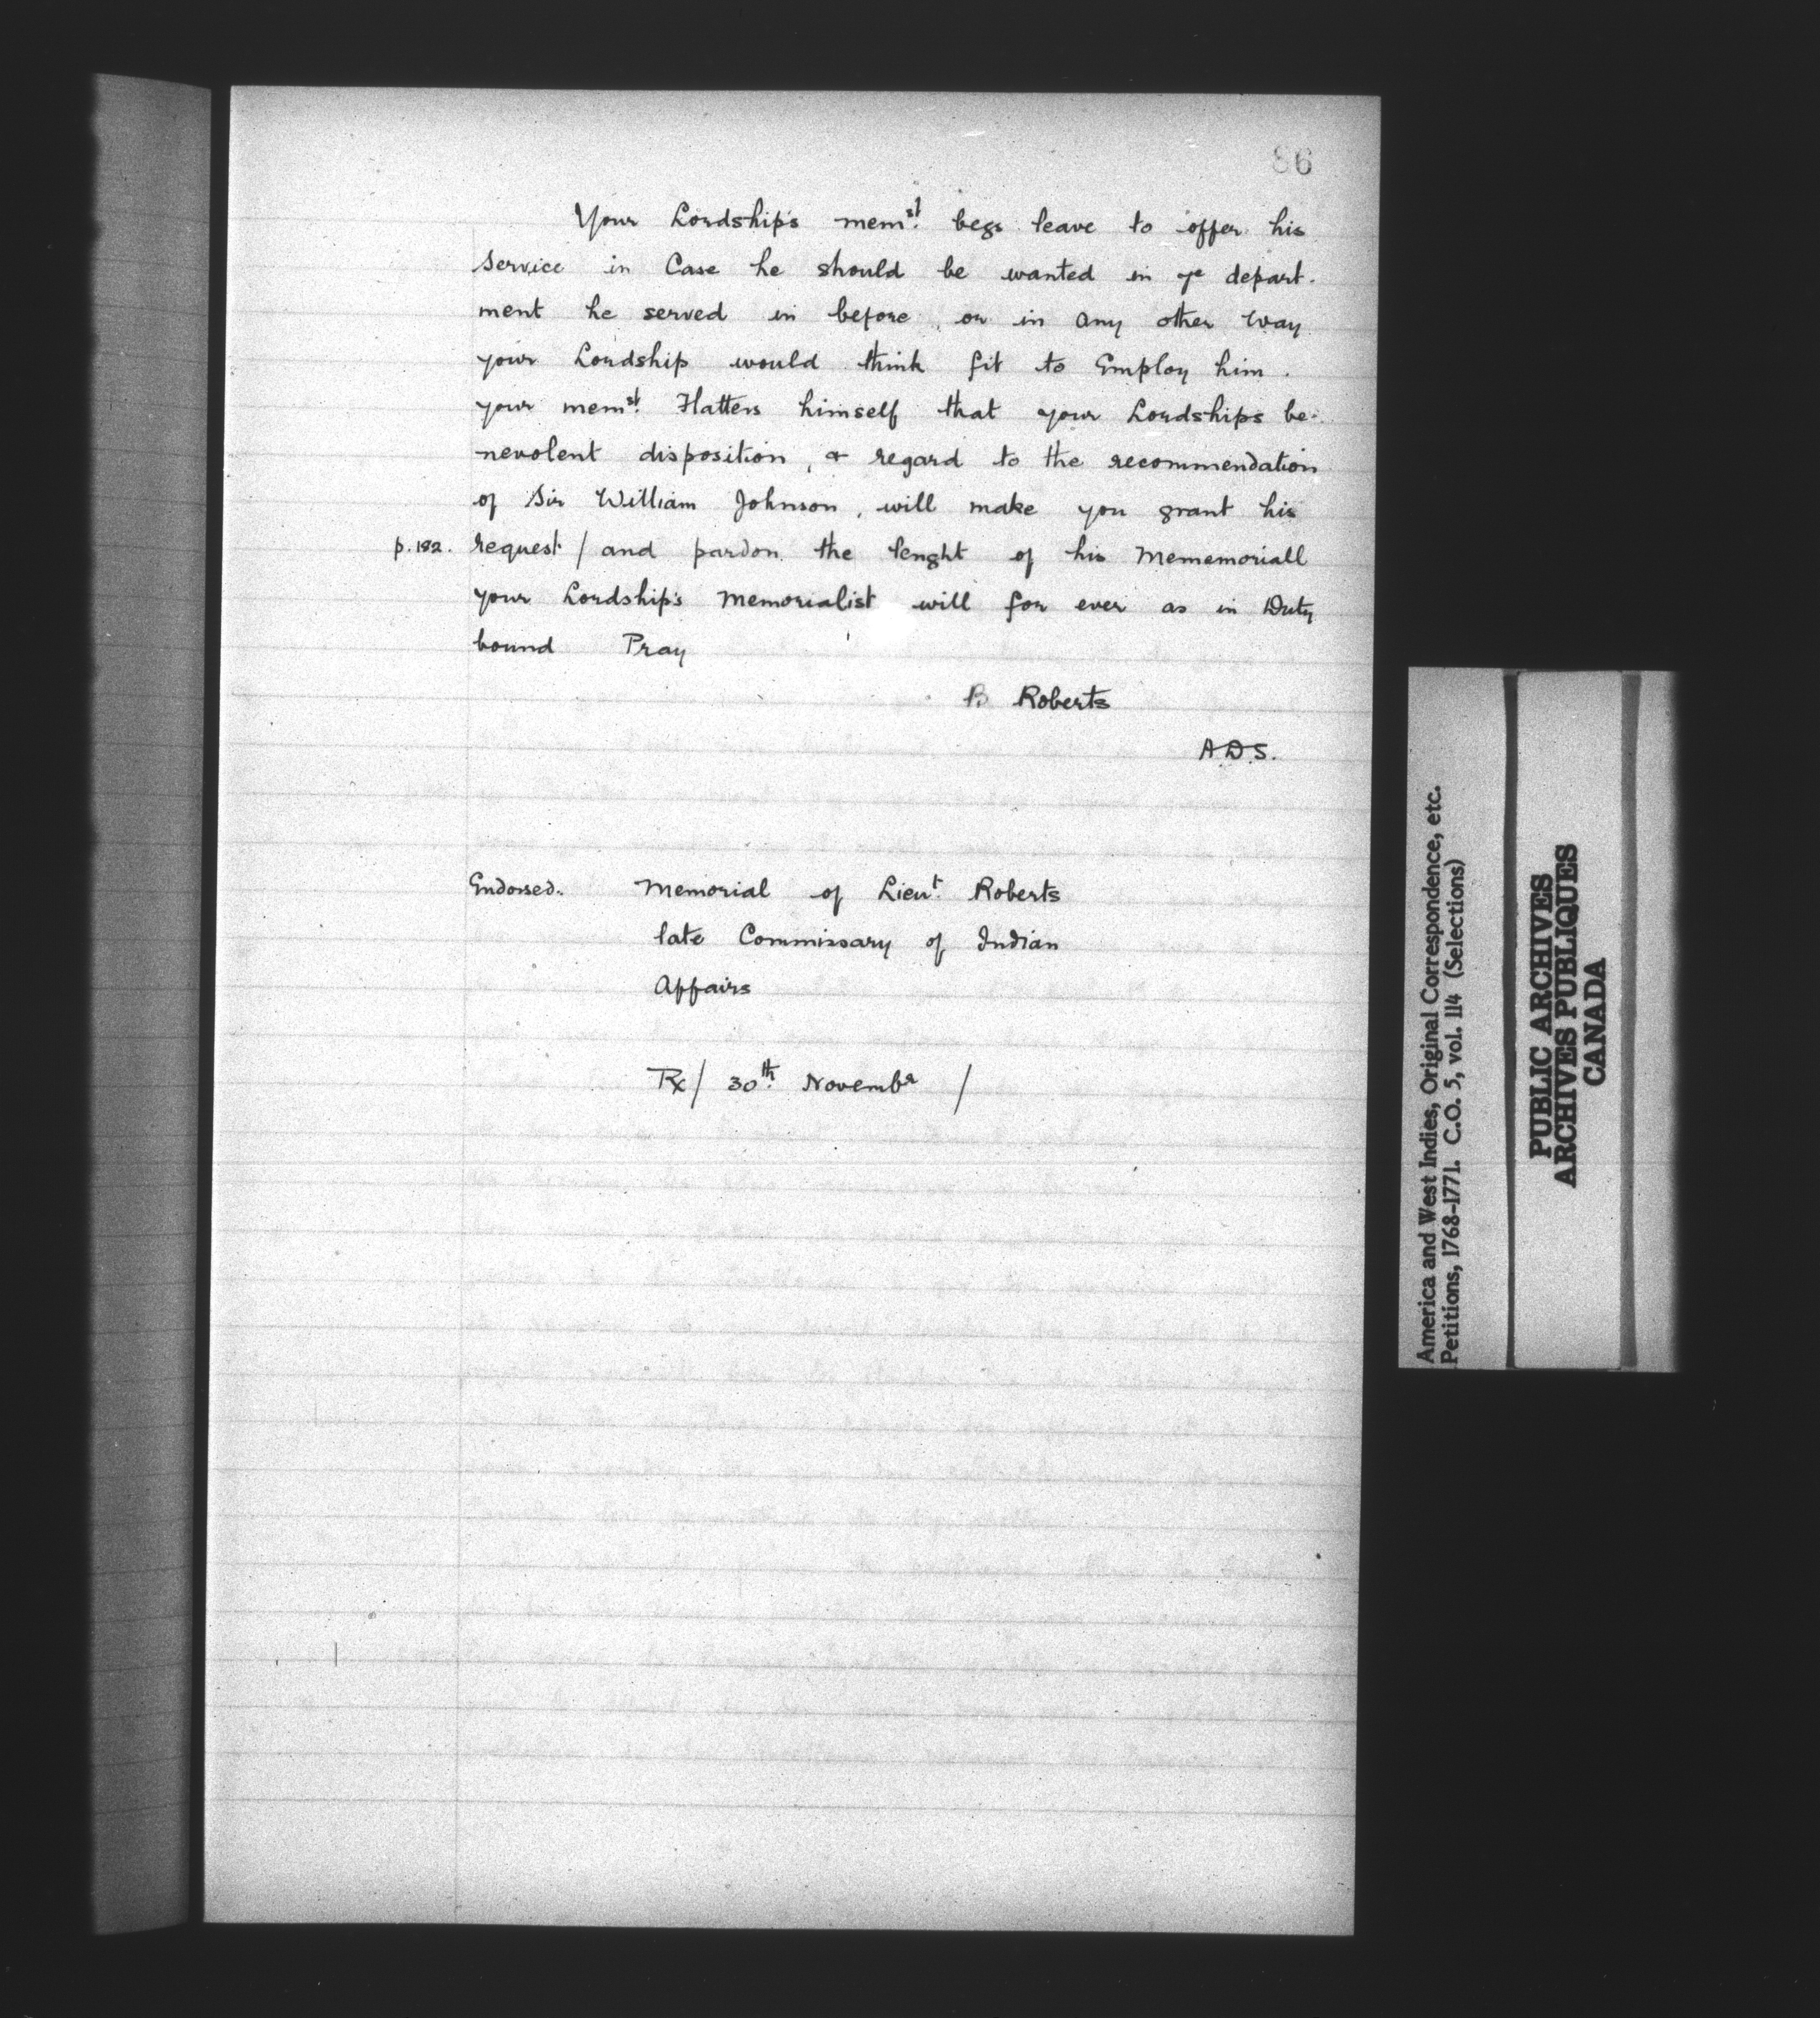 86
Your Lordship's mem.st begs leave to offer his
Service in Case he should be wanted in ye depart-
ment he served in before, or in any other way
your Lordship would think fit to Employ him.
your mem.st Flatters himself that your Lordships be-
nevolent disposition, & regard to the recommendation
of Sir William Johnson, will make you grant his
p.182. request / and pardon the lenght of his Mememoriall
your Lordship's Memorialist will for ever as in Duty
bound Pray
B Roberts
A.D.S.
Endorsed. Memorial of Lieut. Roberts
late Commissary of Indian
Affairs
Rx/ 30th Novembr /
America and West Indies, Original Correspondence, etc.
Petitions, 1768-1771. C.O. 5, vol. 114 (Selections)
PUBLIC ARCHIVES
ARCHIVES PUBLIQUES
CANADA